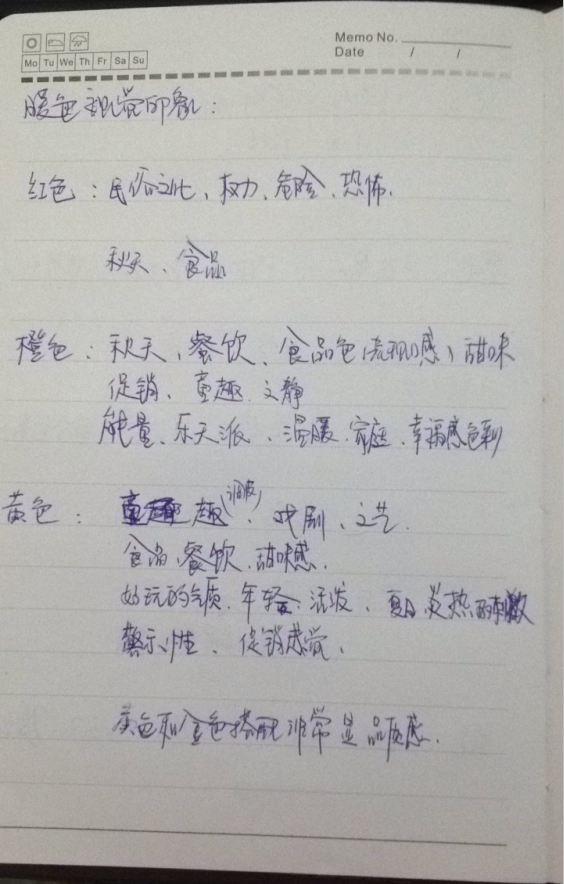 Memo No.
Mo Tu We Th Fr Sa Su
Date / /
暖色视觉印象:
红色:民俗文化、权力、危险、恐怖.
秋天、食品
橙色:秋天、餐饮、食品色(素视感)甜味
促销、童趣.文静
能量、乐天派、温暖.家庭.幸福感色彩
黄色:童趣 趣(调皮)、戏剧、文艺.
食品、餐饮、甜味感.
好玩的气质.年轻.活发、夏日炎热的刺激
警示性、促销感觉、
黄色和金色搭配非常显品质感.